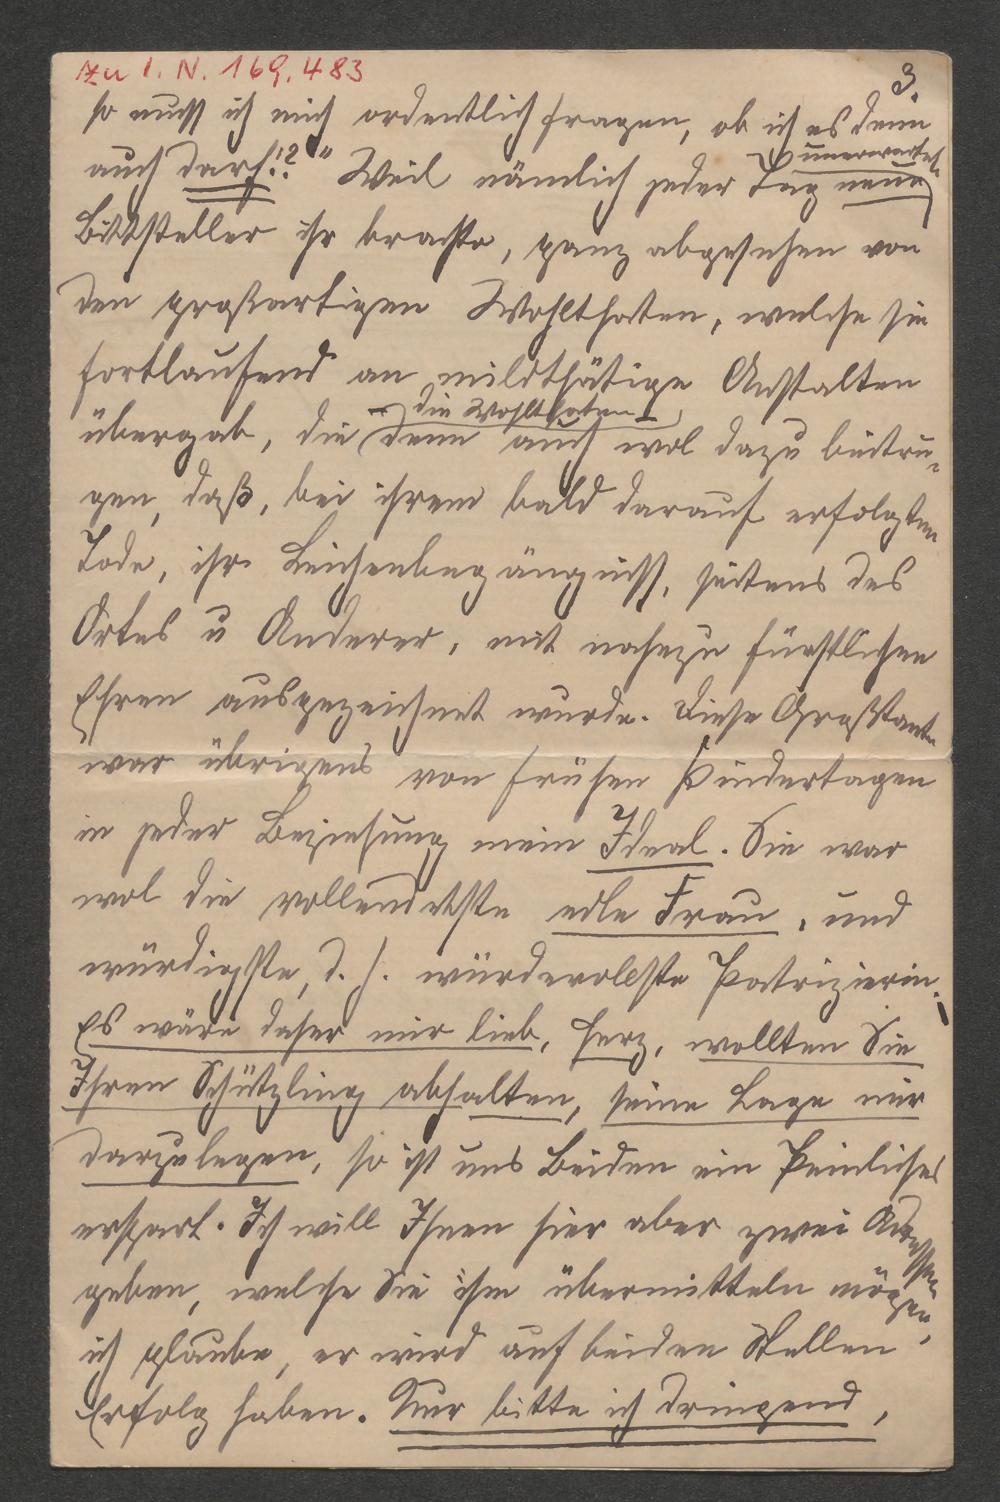 zu I. N. 169.483
3.
so muß ich mich ordentlich fragen, ob ich es denn
auch darf!?" Weil nämlich jeder Tag unerwartet neue
Bittsteller ihr brachte, ganz abgesehen von
den großartigen Wohlthaten, welche sie
fortlaufend an mildthätige Anstalten
die Wohlthaten
übergab, die denn auch wol dazu beitru-
gen, daß, bei ihrem bald darauf erfolgten
Tode, ihr Leichenbegängniß, seitens des
Ortes u Anderer, mit nahezu fürstlichen
Ehren ausgezeichnet wurde. Diese Großtante
war übrigens von frühen Kindertagen
in jeder Beziehung mein Ideal. Sie war
wol die vollendetste edle Frau, und
würdigste, d. h. würdevollste Patrizierin.
Es wäre daher mir lieb, Herz, wollten Sie
Ihren Schützling abhalten, seine Lage mir
darzulegen, so ist uns Beiden ein Peinliches
erspart. Ich will Ihnen hier aber zwei Adressen
geben, welche Sie ihm übermitteln mögen,
ich glaube, er wird auf beiden Stellen
Erfolg haben. Nur bitte ich dringend,